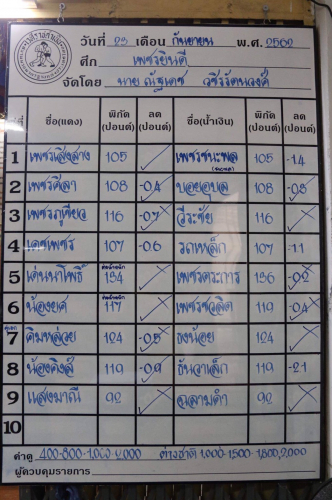 วันที่ 23 เดือน กันยายน พ.ศ. 2562
ศึก เพชรยินดี
จัดโดย นาย ณัฐเดช วชิรรัตนวงศ์
ที่ ชื่อ(แดง) พิกัด (ปอนด์) ลด (ปอนด์) ชื่อ(น้ำเงิน) พิกัด (ปอนด์) ลด (ปอนด์)
1 เพชรเสิงสาง 105 เพชรชนะพล 105 -1.4
2 เพชรศิลา 108 -0.4 บอยอุบล 108 -0.8
3 เพชรภูเขียว 116 -0.7 วีระชัย 116
4 เดชเพชร 107 -0.6 รถเหล็ก 107 -1.1
5 เด่นนาโพธิ์ 134 เพชรตระการ 136 -0.2
6 น้องยศ 117 เพชรชวลิต 119 -0.4
7 คิมหล่วย 124 -0.5 ธงน้อย 124
8 น้องคิงส์ 119 -0.9 ธันวาเล็ก 119 -2.1
9 แสงมาณี 92 ฉลามดำ 92
10
ค่าดู 400-800-1,000-2,000 ต่างชาติ 1,000-1,500-1,800-2,000
ผู้ควบคุมรายการ